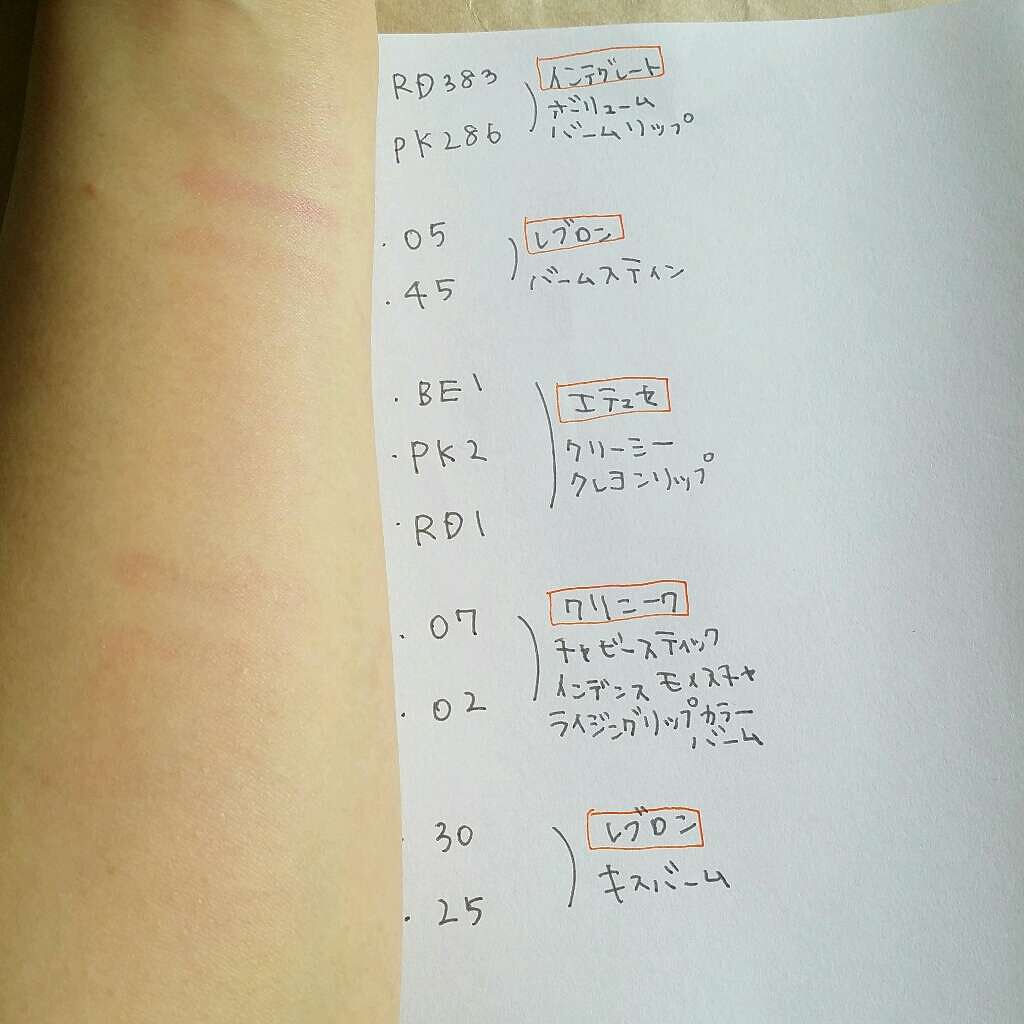 RD383
PK286
インテグレート
ボリューム
バームリップ
・05
・45
レブロン
バームステイン
・BE1
・PK2
・RD1
エテュセ
クリーミー
クレヨンリップ
・07
・02
クリニーク
チャビースティック
インテンス モイスチャ
ライジングリップカラー
バーム
・30
・25
レブロン
キスバーム